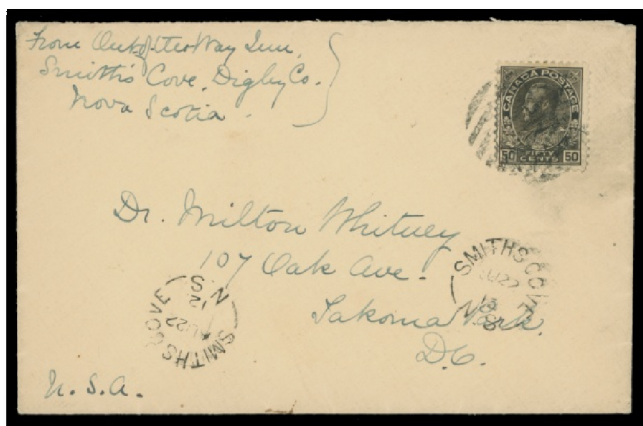 From Out of the Way Inn,
Smith's Cove, Digby Co.
Nova Scotia.
CANADA POSTAGE
50 FIFTY CENTS 50
Dr. Milton Whitney
107 Oak Ave.
Takoma Park.
D.C.
U.S.A.
SMITHS COVE
N.S.
SMITHS COVE
AU 27
12
N.S